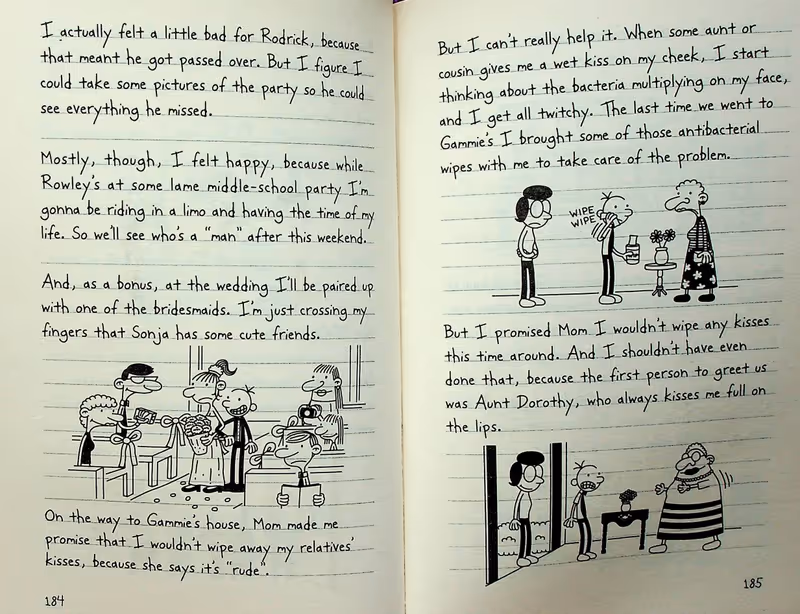 I actually felt a little bad for Rodrick, because
that meant he got passed over. But I figure I
could take some pictures of the party so he could
see everything he missed.
Mostly, though, I felt happy, because while
Rowley's at some lame middle-school party I'm
gonna be riding in a limo and having the time of my
life. So we'll see who's a "man" after this weekend.
And, as a bonus, at the wedding I'll be paired up
with one of the bridesmaids. I'm just crossing my
fingers that Sonja has some cute friends.
On the way to Gammie's house, Mom made me
promise that I wouldn't wipe away my relatives'
kisses, because she says it's "rude".
184
But I can't really help it. When some aunt or
cousin gives me a wet kiss on my cheek, I start
thinking about the bacteria multiplying on my face,
and I get all twitchy. The last time we went to
Gammie's I brought some of those antibacterial
wipes with me to take care of the problem.
WIPE
WIPE
But I promised Mom I wouldn't wipe any kisses
this time around. And I shouldn't have even
done that, because the first person to greet us
was Aunt Dorothy, who always kisses me full on
the lips.
185